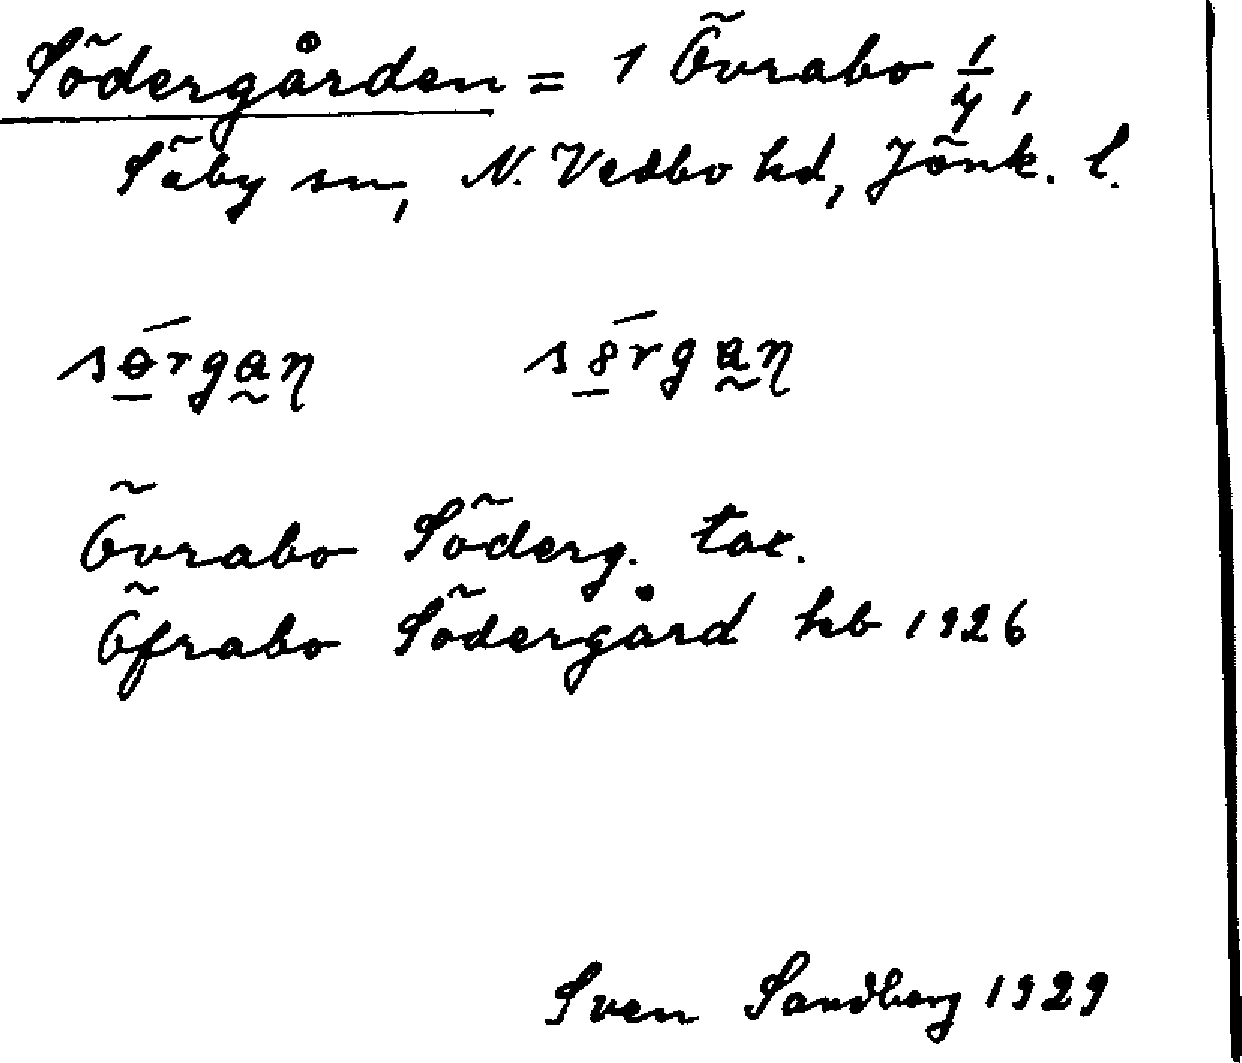 Södergården = 1 Övrabo 1/4,
Säby sn, N. Vedbo hd, Jönk. l.
Övrabo Söderg. tax.
Öfrabo Södergård hb 1926
Sven Sandberg 1929